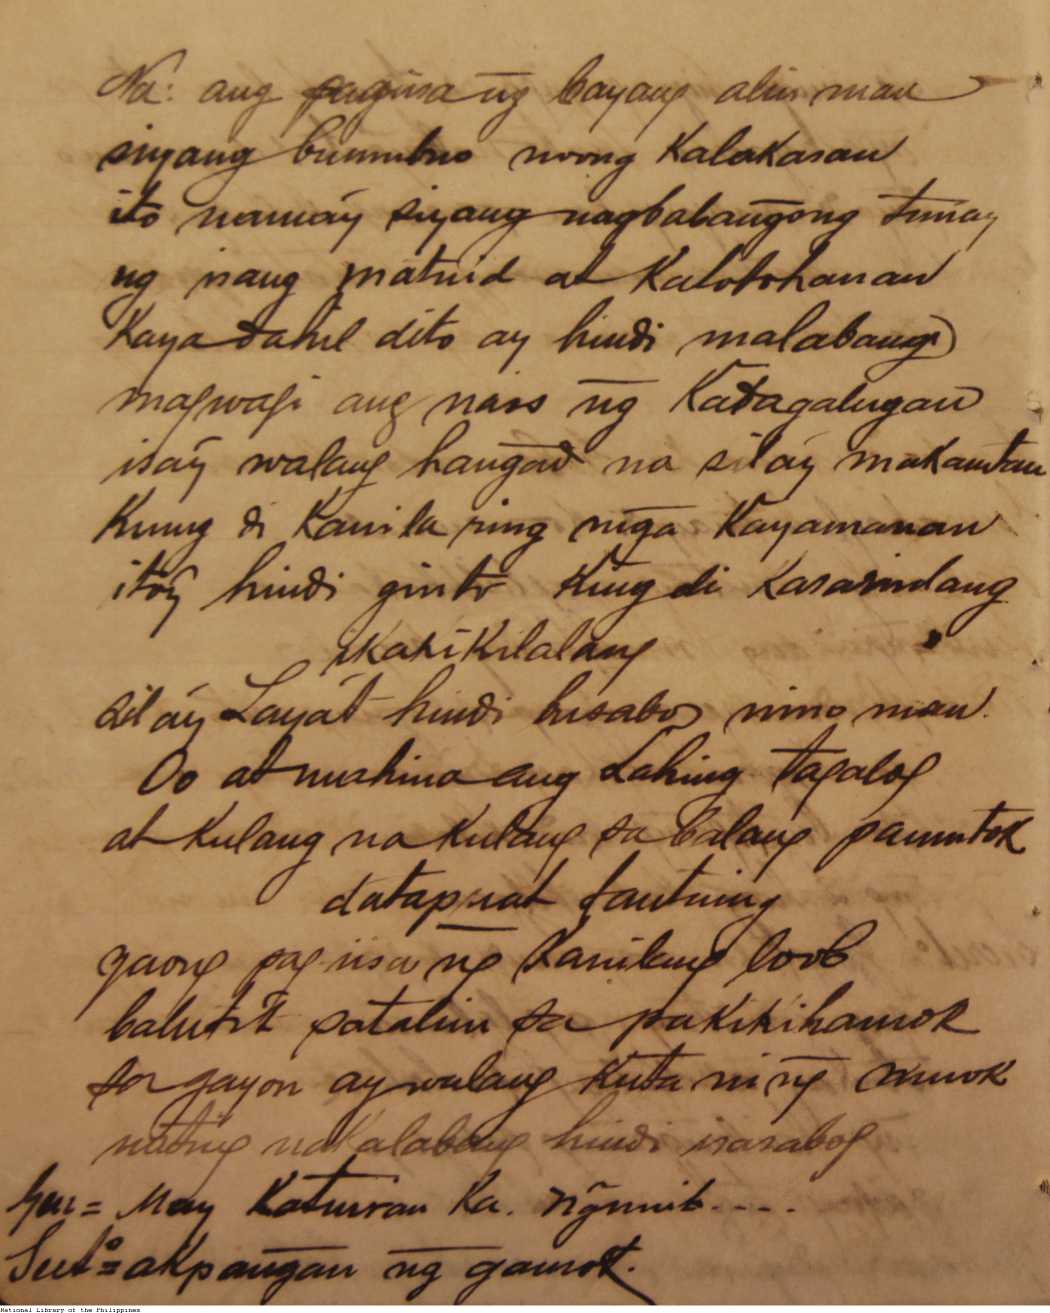 Na: ang pagiisa ng̃ bayang alin man
siyang bumubuo noong Kalakasan
ito namáy siyang nagbabang̃ong tunay
ng isang matuid at Katotohanan
Kaya dahil dito ay hindi malabang
magwagi ang nais ng̃ Katagalugan
isáy walang hang̃ad na siláy makamtan
Kung di Kanila ring mg̃a Kayamanan
itóy hindi ginto Kung di Kasarinlang
ikakikilalang
siláy Layát hindi busabos nino man.
Oo at mahina ang Lahing tagalog
at Kulang na Kulang sa balang panutok
datapuat
gaong pag iisa ng̃ Kanilang loob
balutit patalim sa pakikihamok
sa gayon ay walang Kuta ni ng̃
nating nakalabang hindi isasabog
= May Katuiran Ka. ng̃unit....
= akpang̃an ng̃ gamot.
National Library of the Philippines